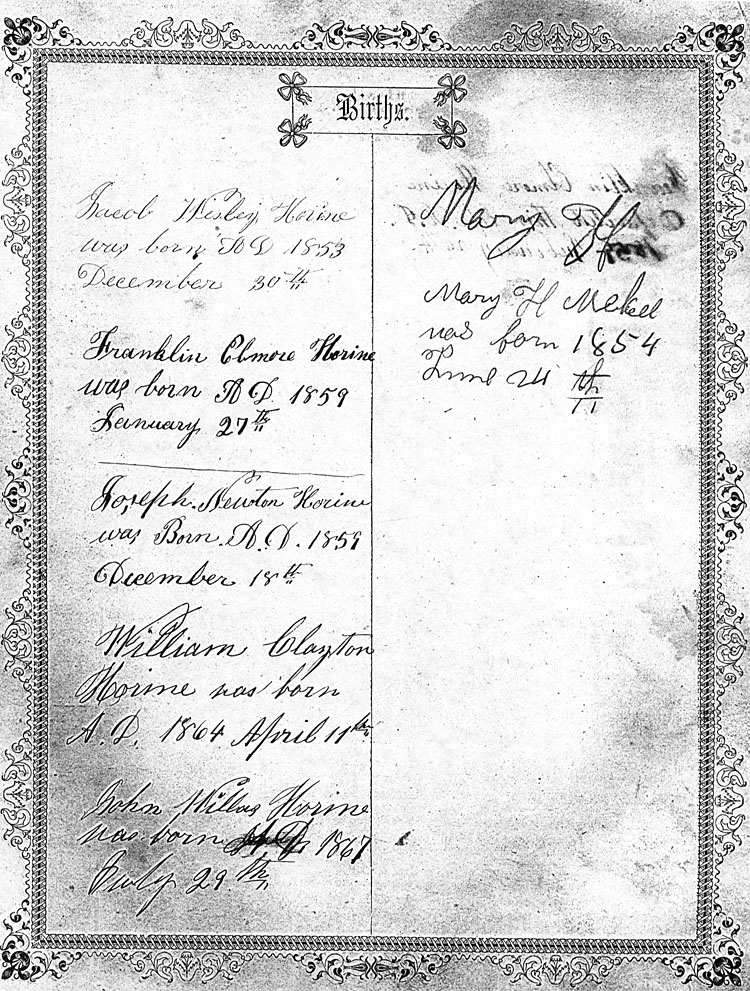 Births.
Jacob Wesley Horine
was born A D 1853
December 30th
Franklin Elmore Horine
was born A D 1859
January 27th
Joseph Newton Horine
was Born A.D. 1859
December 18th
William Clayton
Horine was born
A.D. 1864 April 11th
John Willas Horine
was born A.D. 1867
July 29th
Mary H
Mary H Mekeel
was born 1854
June 24 th